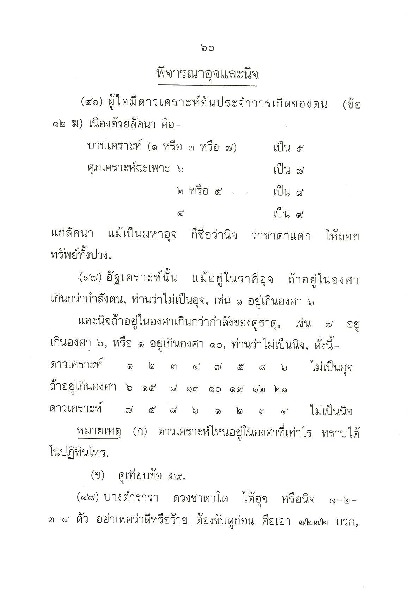 ๖๐
พิจารณาอุจและนิจ
ผู้ใดมีดาวเคราะห์อันประจำวารเกิดของตน (ข้อ
๑๒ ฆ) เนื่องด้วยลัคนา คือ-
บาปเคราะห์ (๑ หรือ ๓ หรือ ๗) เป็น ๕
ศุภเคราะห์ฉะเพาะ ๖ เป็น ๗
๒ หรือ ๕ เป็น ๘
๔ เป็น ๙
แก่ลัคนา แม้เป็นมหาอุจ ก็ชื่อว่านิจ ราชาตาแตก
ทรัพย์ทั้งปวง.
อัฐเคราะห์นั้น แม้อยู่ในราศีอุจ ถ้าอยู่ในองศา
เกินกว่ากำลังตน, ท่านว่าไม่เป็นอุจ, เช่น ๑ อยู่เกินองศา ๖
และนิจถ้าอยู่ในองศาเกินกว่ากำลังของคู่ธาตุ, เช่น ๗ อยู่
เกินองศา ๖, หรือ ๑ อยู่เกินองศา ๑๐, ท่านว่าไม่เป็นนิจ, ดังนี้-
ดาวเคราะห์ ๑ ๒ ๓ ๔ ๗ ๕ ๘ ๖ ไม่เป็นอุจ
ถ้าอยู่เกินองศา ๖ ๑๕ ๘ ๑๗ ๑๐ ๑๙ ๑๒ ๒๑
ดาวเคราะห์ ๗ ๕ ๘ ๖ ๑ ๒ ๓ ๔ ไม่เป็นนิจ
หมายเหตุ (ก) ดาวเคราะห์ไหนอยู่ในองศาที่เท่าไร ทราบได้
ในปฏิทินโหร.
(ข) ดูเทียบข้อ ๓๙.
บางตำราว่า ดวงชาตาใด ได้อุจ หรือนิจ
ตัว อย่าเพ่อว่าดีหรือร้าย ต้องขับดูก่อน คือเอา บวก,